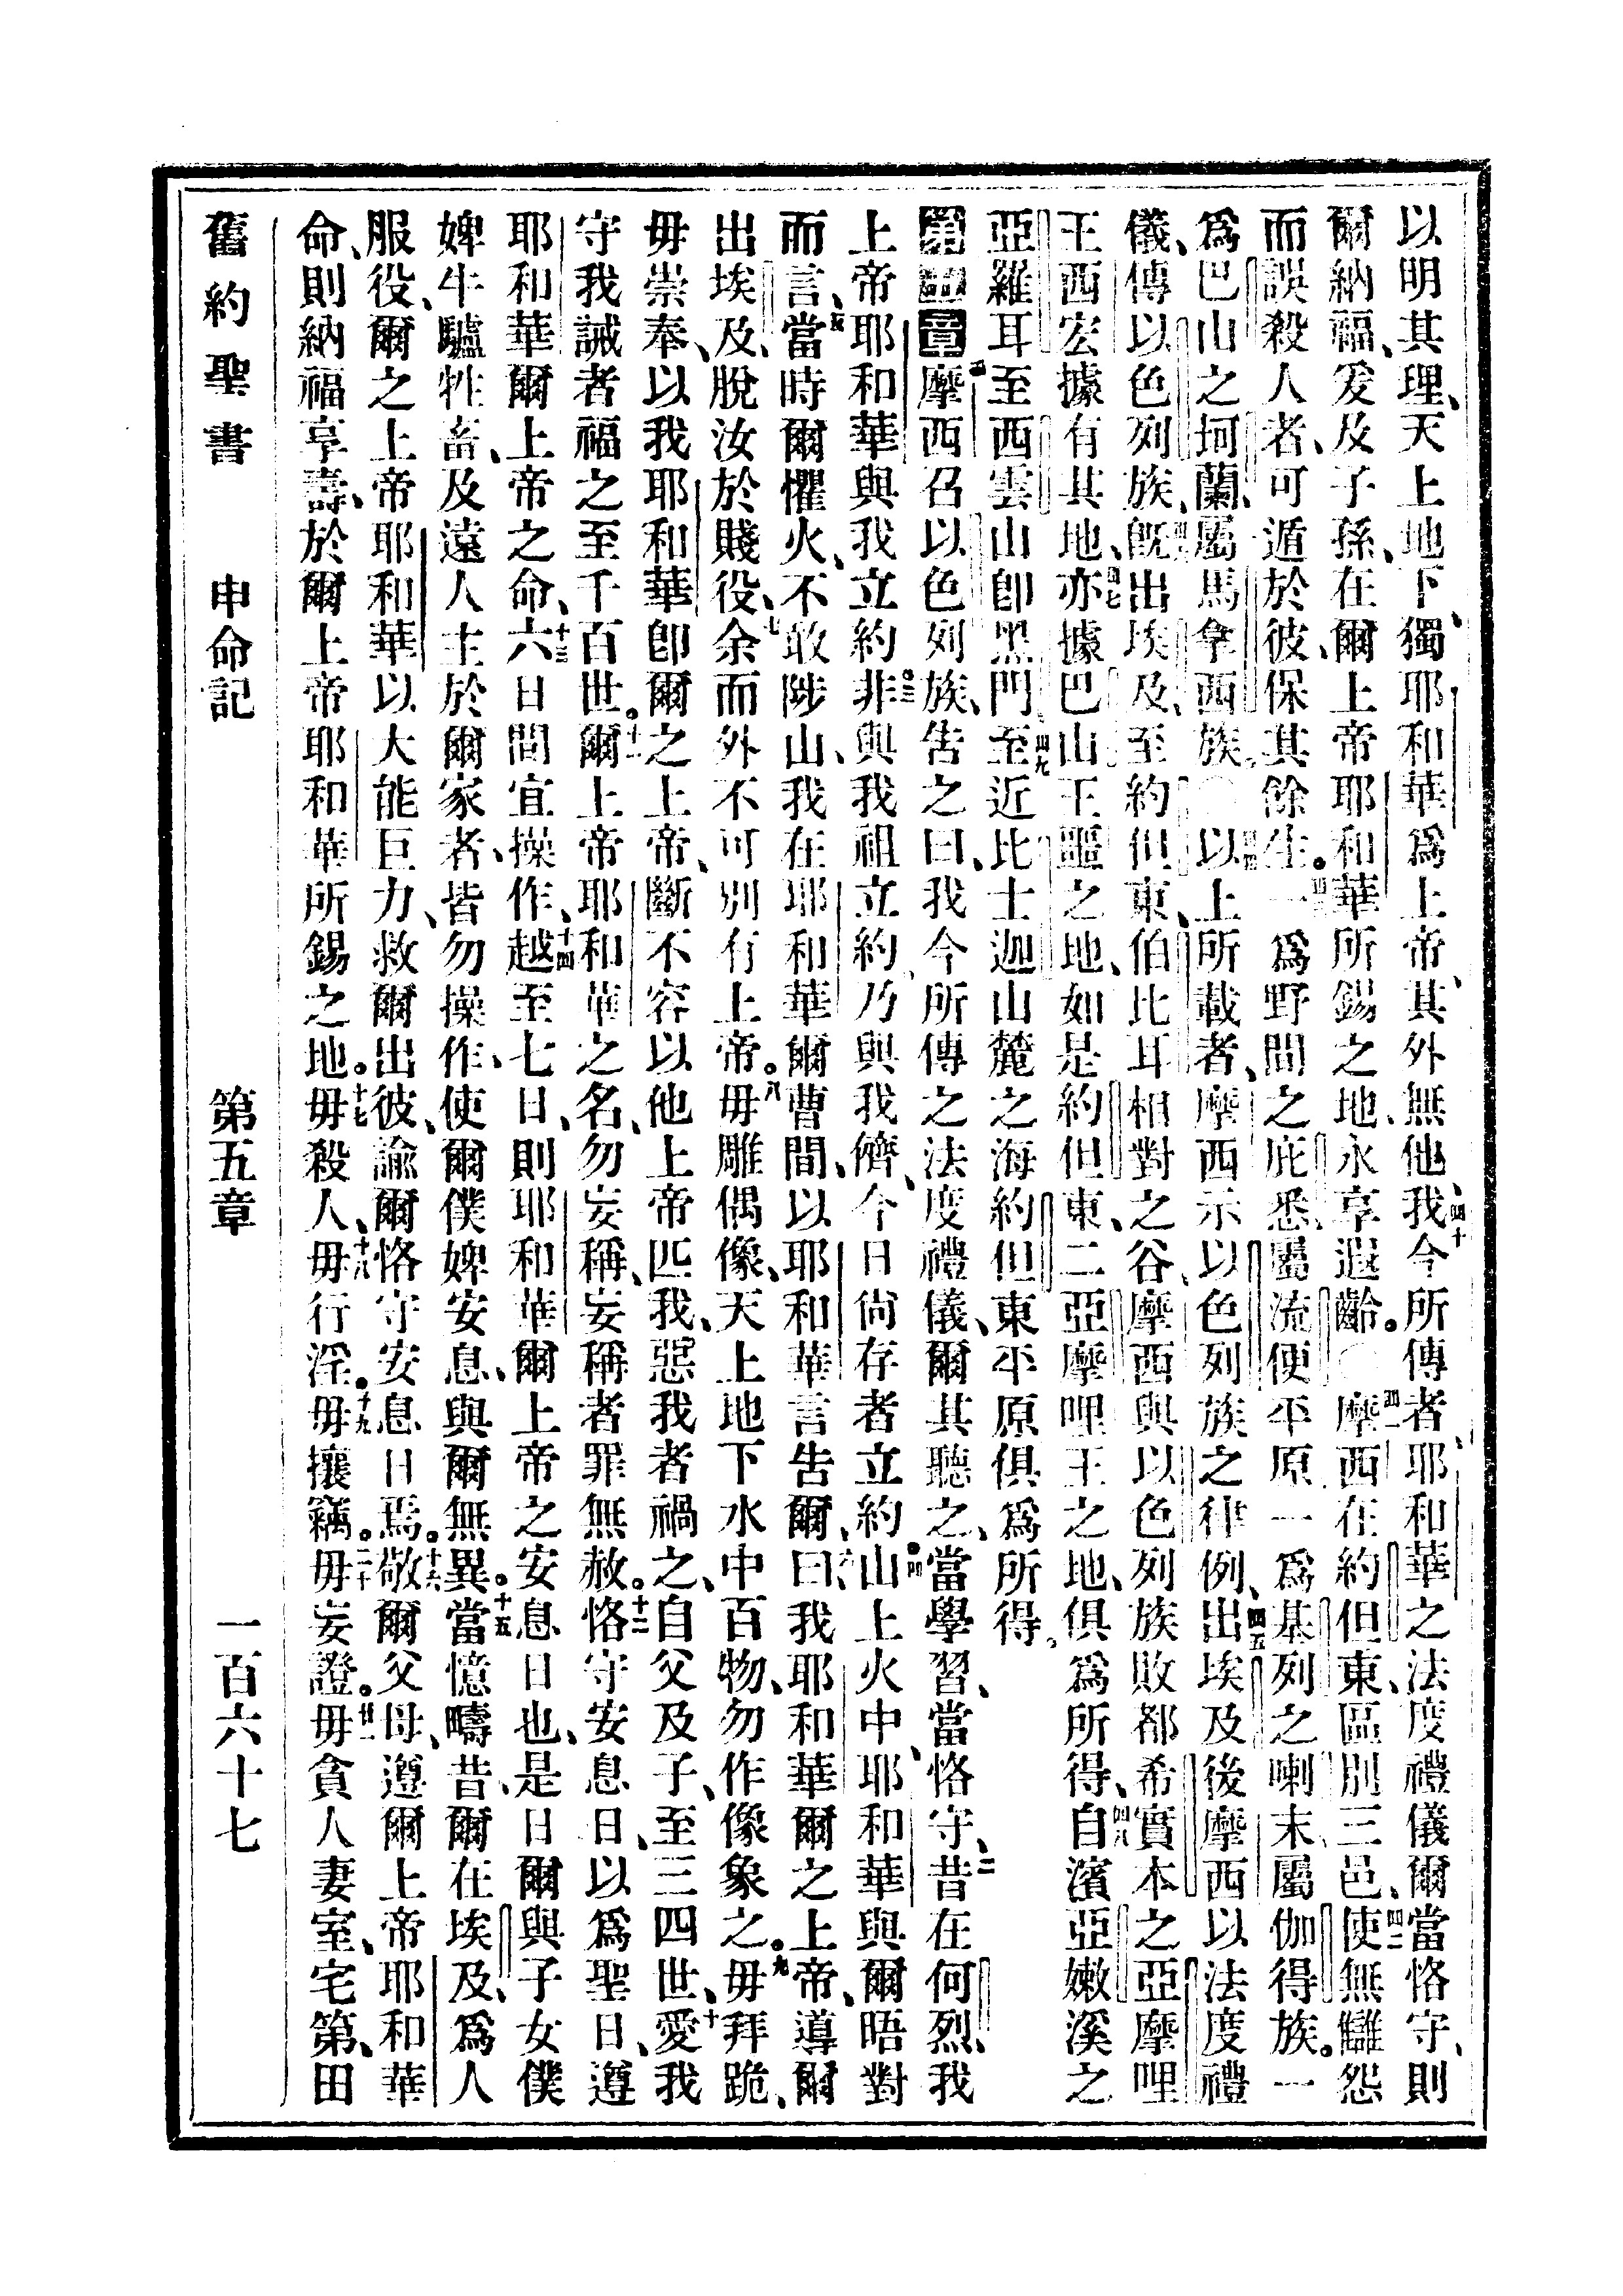 以明其理、天上地下、獨耶和華爲上帝、其外無他、四十我今所傳者、耶和華之法度禮儀、爾當恪守、則
爾納福、爰及子孫、在爾上帝耶和華所錫之地、永享遐齡。○四一摩西在約但東、區別三邑、四二使無讎怨
而誤殺人者、可遁於彼、保其餘生。四三一爲野間之庇悉、屬流便平原、一爲基列之喇末、屬伽得族。一
爲巴山之坷蘭、屬馬拿西族。○四四以上所載者、摩西示以色列族之律例、四五出埃及後、摩西以法度禮
儀、傳以色列族、四六旣出埃及、至約但東、伯比耳相對之谷、摩西與以色列族敗都希實本之亞摩哩
王西宏、據有其地、四七亦據巴山王噩之地、如是約但東、二亞摩哩王之地、俱爲所得、四八自濱亞嫩溪之
亞羅耳、至西雲山卽黑門、四九至近比士迦山麓之海、約但東平原、俱爲所得。
第五章 一摩西召以色列族、告之曰、我今所傳之法度禮儀、爾其聽之、當學習、當恪守、二昔在何烈、我
上帝耶和華與我立約。三非與我祖立約、乃與我儕、今日尙存者立約。四山上火中、耶和華與爾晤對
而言、五當時爾懼火、不敢陟山、我在耶和華爾曹間、以耶和華言告爾、六曰、我耶和華爾之上帝、導爾
出埃及、脫汝於賤役、七余而外不可別有上帝。八毋雕偶像、天上地下水中百物、勿作像象之。九毋拜跪、
毋崇奉、以我耶和華卽爾之上帝、斷不容以他上帝匹我、惡我者禍之、自父及子、至三四世、十愛我
守我誡者福之、至千百世。十一爾上帝耶和華之名、勿妄稱、妄稱者罪無赦。十二恪守安息日、以爲聖日、遵
耶和華爾上帝之命、十三六日間宜操作、十四越至七日、則耶和華爾上帝之安息日也、是日爾與子女僕
婢牛驢牲畜、及遠人主於爾家者、皆勿操作、使爾僕婢安息、與爾無異。十五當憶疇昔、爾在埃及、爲人
服役、爾之上帝耶和華以大能巨力、救爾出彼、諭爾恪守安息日焉。十六敬爾父母、遵爾上帝耶和華
命、則納福享壽、於爾上帝耶和華所錫之地。十七毋殺人、十八毋行淫。十九毋攘竊。二十毋妄證。廿一毋貪人妻室、宅第、田
舊約聖書 申命記 第五章 一百六十七